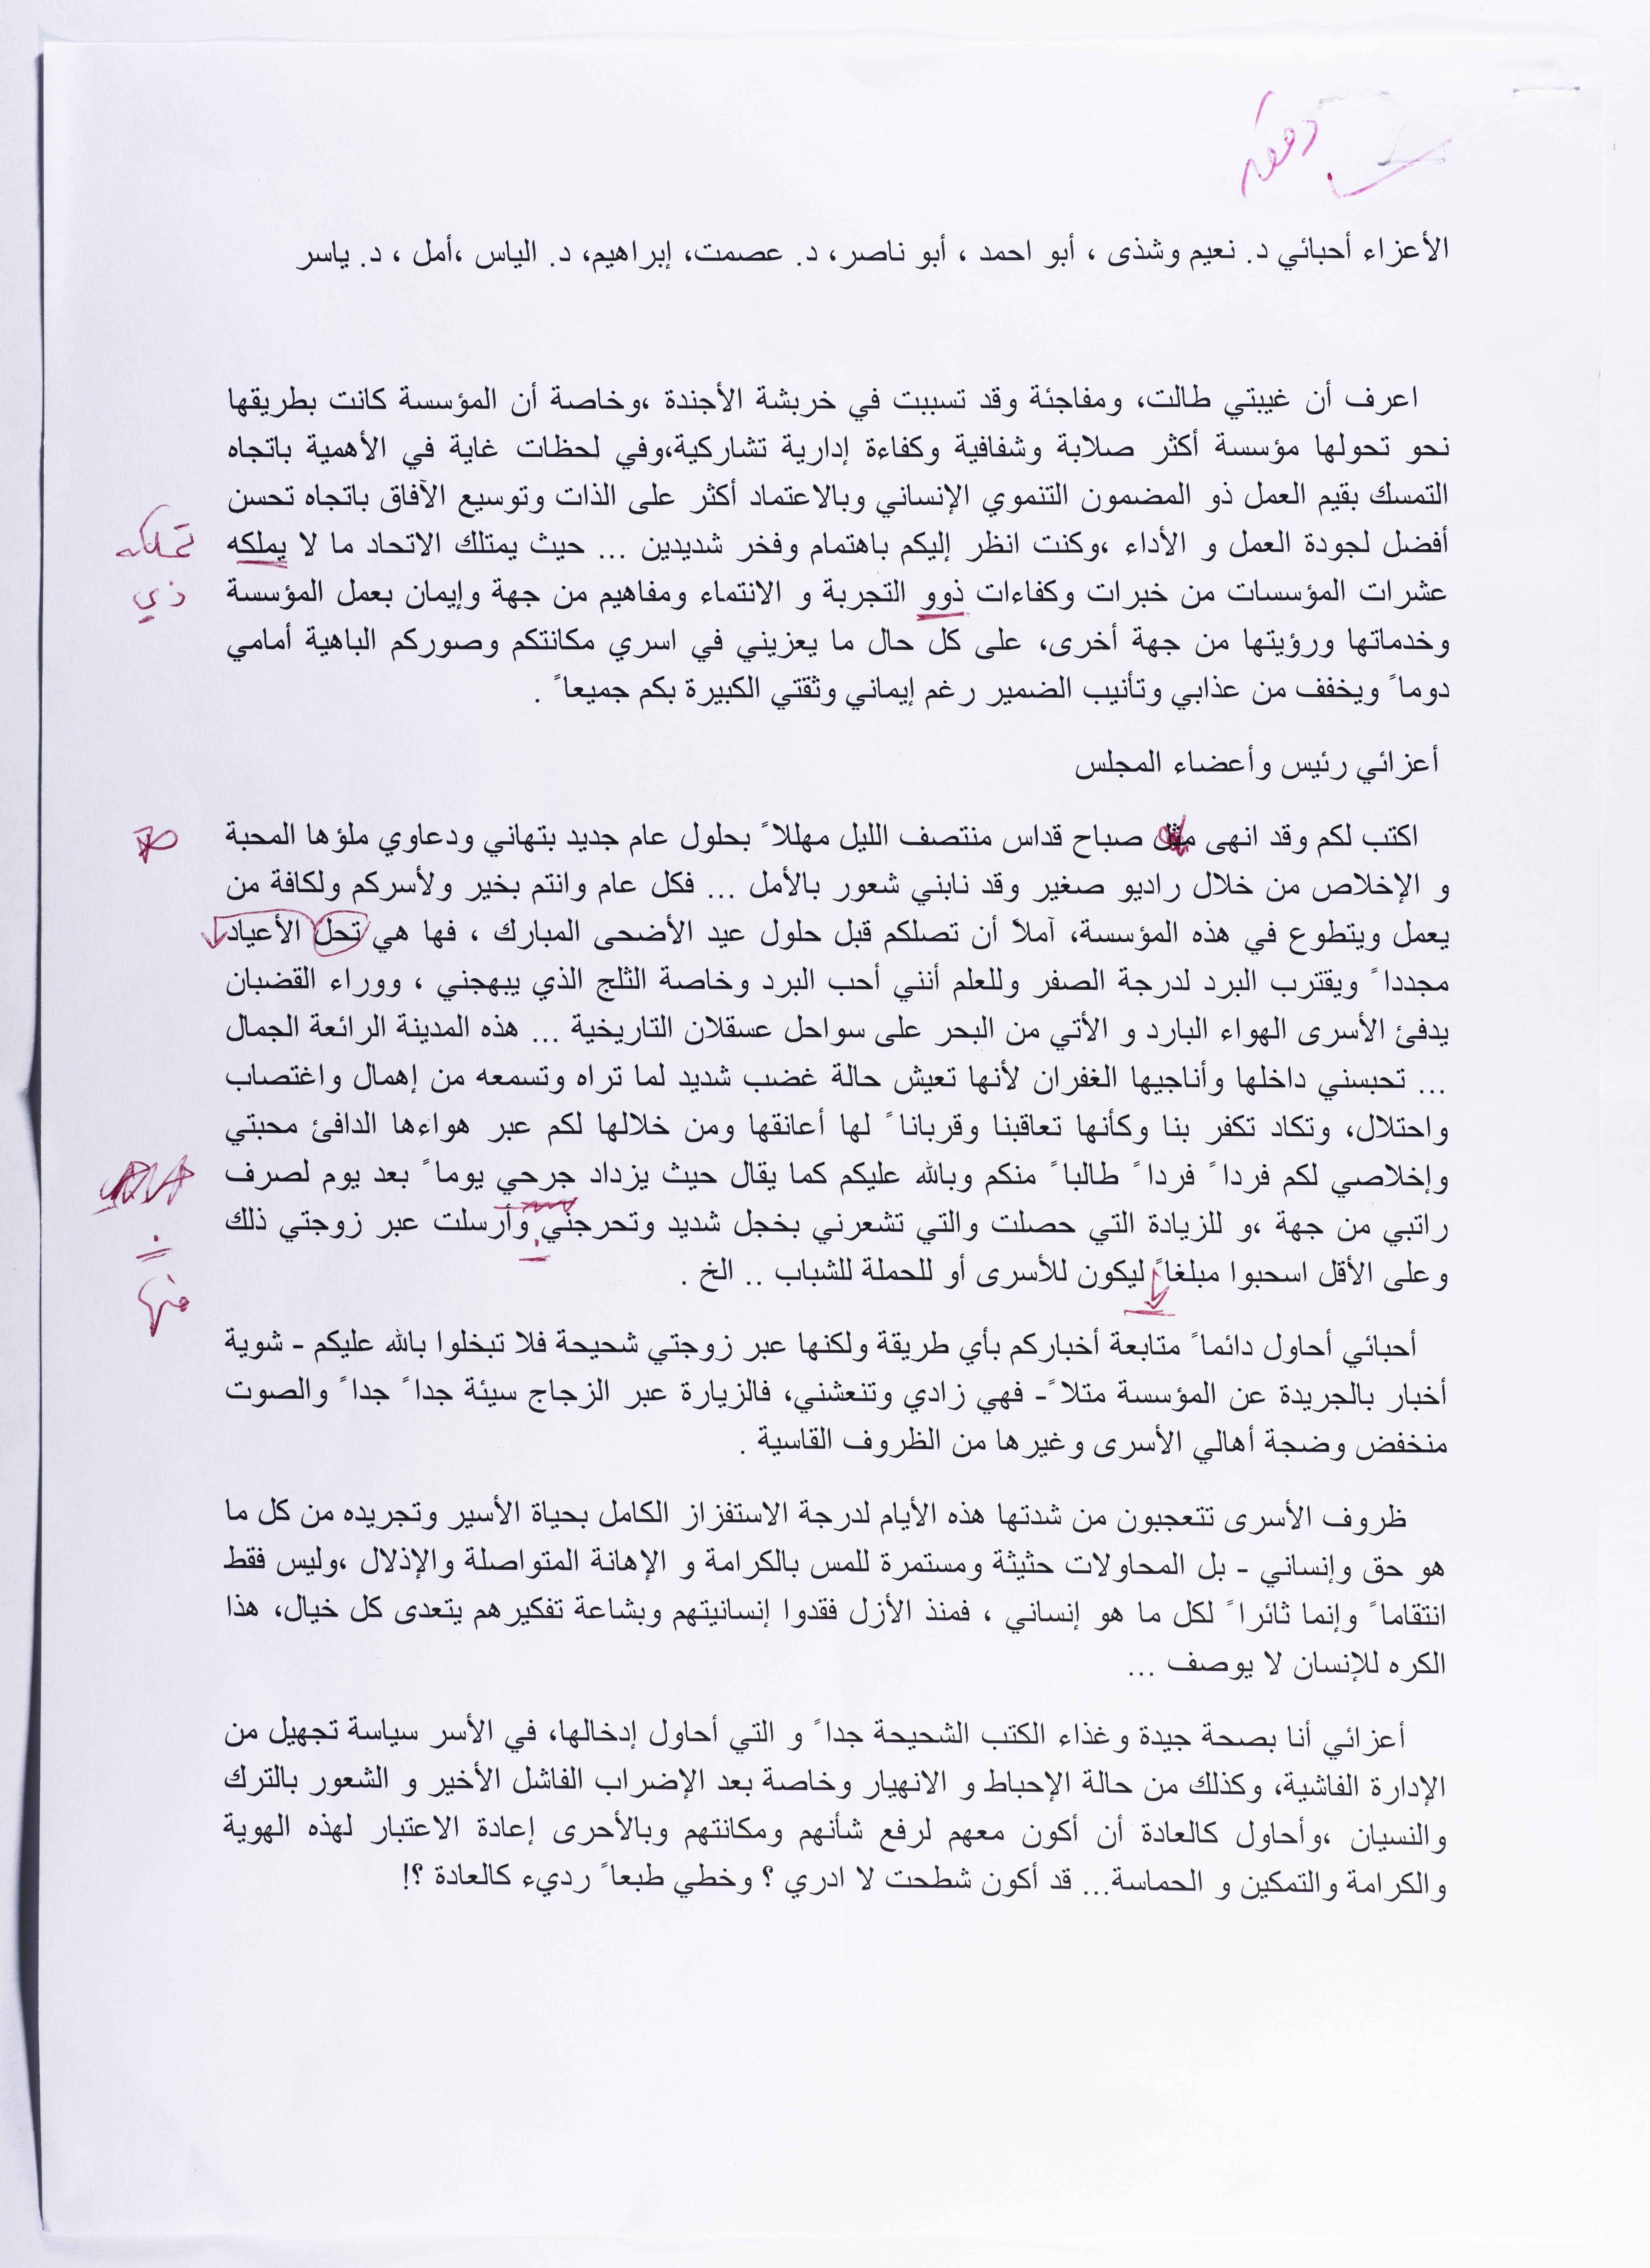 الأعزاء أحبائي د. نعيم وشذى ، أبو احمد ، أبو ناصر، د. عصمت، إبراهيم، د. الياس ،أمل ، د. ياسر
اعرف أن غيبتي طالت، ومفاجئة وقد تسببت في خربشة الأجندة ،وخاصة أن المؤسسة كانت بطريقها
نحو تحولها مؤسسة أكثر صلابة وشفافية وكفاءة إدارية تشاركية،وفي لحظات غاية في الأهمية باتجاه
التمسك بقيم العمل ذو المضمون التنموي الإنساني وبالاعتماد أكثر على الذات وتوسيع الآفاق باتجاه تحسن
أفضل لجودة العمل و الأداء ،وكنت انظر إليكم باهتمام وفخر شديدين ... حيث يمتلك الاتحاد ما لا يملكه
تملكه
عشرات المؤسسات من خبرات وكفاءات ذوو التجربة و الانتماء ومفاهيم من جهة وإيمان بعمل المؤسسة
ذي
وخدماتها ورؤيتها من جهة أخرى، على كل حال ما يعزيني في اسري مكانتكم وصوركم الباهية أمامي
دوما ً ويخفف من عذابي وتأنيب الضمير رغم إيماني وثقتي الكبيرة بكم جميعا ً .
أعزائي رئيس وأعضاء المجلس
اكتب لكم وقد انهى مثل صباح قداس منتصف الليل مهللا ً بحلول عام جديد بتهاني ودعاوي ملؤها المحبة
و الإخلاص من خلال راديو صغير وقد نابني شعور بالأمل ... فكل عام وانتم بخير ولأسركم ولكافة من
يعمل ويتطوع في هذه المؤسسة، آملاً أن تصلكم قبل حلول عيد الأضحى المبارك ، فها هي تحل الأعياد
مجددا ً ويقترب البرد لدرجة الصفر وللعلم أنني أحب البرد وخاصة الثلج الذي يبهجني ، ووراء القضبان
يدفئ الأسرى الهواء البارد و الأتي من البحر على سواحل عسقلان التاريخية ... هذه المدينة الرائعة الجمال
... تحبسني داخلها وأناجيها الغفران لأنها تعيش حالة غضب شديد لما تراه وتسمعه من إهمال واغتصاب
واحتلال، وتكاد تكفر بنا وكأنها تعاقبنا وقربانا ً لها أعانقها ومن خلالها لكم عبر هواءها الدافئ محبتي
وإخلاصي لكم فردا ً فردا ً طالبا ً منكم وبالله عليكم كما يقال حيث يزداد جرحي يوما ً بعد يوم لصرف
راتبي من جهة ،و للزيادة التي حصلت والتي تشعرني بخجل شديد وتحرجني وأرسلت عبر زوجتي ذلك
وعلى الأقل اسحبوا مبلغا ً ليكون للأسرى أو للحملة للشباب .. الخ .
منها
أحبائي أحاول دائما ً متابعة أخباركم بأي طريقة ولكنها عبر زوجتي شحيحة فلا تبخلوا بالله عليكم - شوية
أخبار بالجريدة عن المؤسسة متلا ً- فهي زادي وتنعشني، فالزيارة عبر الزجاج سيئة جدا ً جدا ً والصوت
منخفض وضجة أهالي الأسرى وغيرها من الظروف القاسية .
ظروف الأسرى تتعجبون من شدتها هذه الأيام لدرجة الاستفزاز الكامل بحياة الأسير وتجريده من كل ما
هو حق وإنساني - بل المحاولات حثيثة ومستمرة للمس بالكرامة و الإهانة المتواصلة والإذلال ،وليس فقط
انتقاما ً وإنما ثائرا ً لكل ما هو إنساني ، فمنذ الأزل فقدوا إنسانيتهم وبشاعة تفكيرهم يتعدى كل خيال، هذا
الكره للإنسان لا يوصف ...
أعزائي أنا بصحة جيدة وغذاء الكتب الشحيحة جدا ً و التي أحاول إدخالها، في الأسر سياسة تجهيل من
الإدارة الفاشية، وكذلك من حالة الإحباط و الانهيار وخاصة بعد الإضراب الفاشل الأخير و الشعور بالترك
والنسيان ،وأحاول كالعادة أن أكون معهم لرفع شأنهم ومكانتهم وبالأحرى إعادة الاعتبار لهذه الهوية
والكرامة والتمكين و الحماسة... قد أكون شطحت لا ادري ؟ وخطي طبعا ً رديء كالعادة ؟!